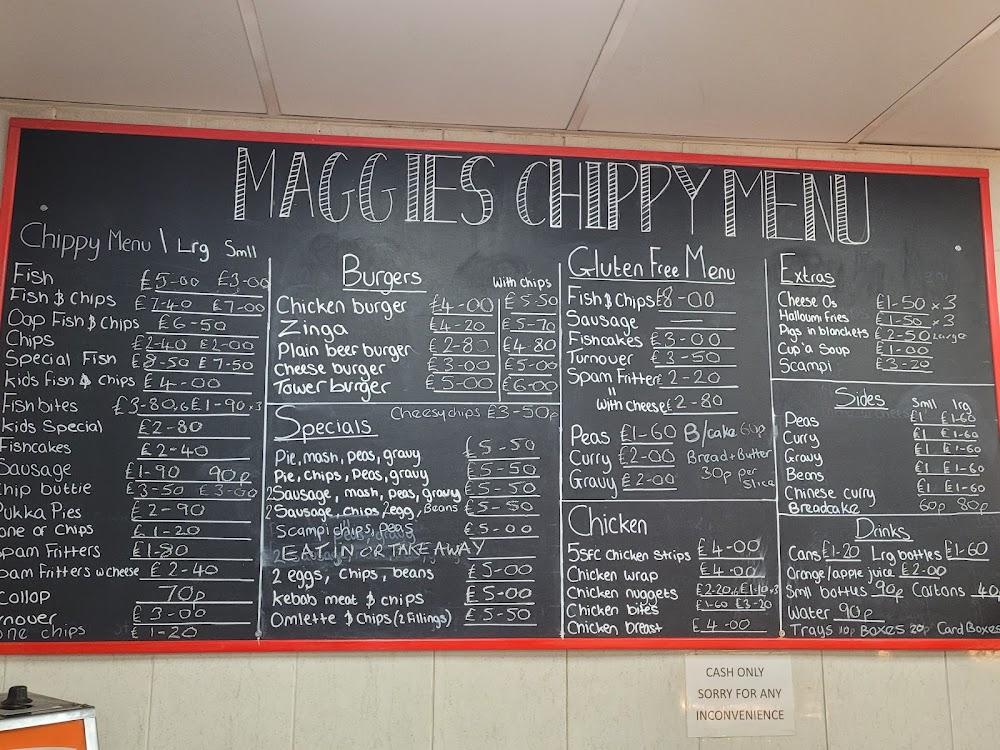 MAGGIES CHIPPY MENU
Chippy Menu \ Lrg Smll
Fish £5-00 £3-00
Fish & chips £7-40 £7-00
Cap Fish & chips £6-50
Chips £2-40 £2-00
Special Fish £8-50 £7-50
kids Fish & chips £4-00
Fishbites £3-80,6 £1-90x3
kids Special £2-80
Fishcakes £2-40
Sausage £1-90 90p
hip buttie £3-50 £3-00
Pukka Pies £2-90
one of chips £1-20
pam Fritters £1-80
pam Fritters w cheese £2-40
collop 70p
rnover £3-00
one chips £1-20
Burgers
With chips
Chicken burger £4-00 £5-50
Zinga £4-20 £5-70
Plain beer burger £2-80 £4-80
Cheese burger £3-00 £5-00
Tower burger £5-00 £6-00
Cheesychips £3-50p
Specials
Pie, mash, peas, gravy £5-50
Pie, chips, Peas, gravy £5-50
2Sausage, mash, peas, gravy £5-50
2Sausage, chips 2egg, Beans £5-50
Scampi chips, peas £5-00
EAT IN OR TAKE AWAY
2 eggs, chips, beans £5-00
kebab meat & chips £5-00
Omlette & Chips (2 Fillings) £5-50
Gluten Free Menu
Fish & Chips £8-00
Sausage
Fishcakes £3-00
Turnover £3-50
Spam Fritter £2-20
" with cheese £2-80
Peas £1-60 B/cake 60p
Curry £2-00 Bread+Butter
Gravy £2-00 30p per slice
Chicken
5SFC Chicken Strips £4-00
Chicken wrap £4-00
Chicken nuggets £2-20,6 £1-10x3
Chicken bites £1-60 £3-20
Chicken breast £4-00
Extras
Cheese Os £1-50 x 3
Halloumi fries £1-50 x 3
Pigs in blanckets £2-50 Large
Cup'a Soup £1-00
Scampi £3-20
Sides Smll lrg
Peas £1 £1-60
Curry £1 £1-60
Gravy £1 £1-60
Beans £1 £1-60
Chinese curry £1 £1-60
Breadcake 60p 80p
Drinks
Cans £1-20 Lrg bottles £1-60
Orange/apple juice £2-00
Smll bottus 90p Cartons 40p
Water 90p
Trays 10p Boxes 20p Card Boxes
CASH ONLY
SORRY FOR ANY
INCONVENIENCE